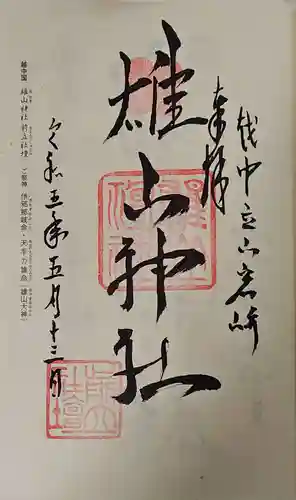 越中立山岩峅
奉拝
雄山神社
令和五年五月十三日
越中国 雄山神社前立社壇 ご祭神 伊邪那岐命・天手力雄命(雄山大神)